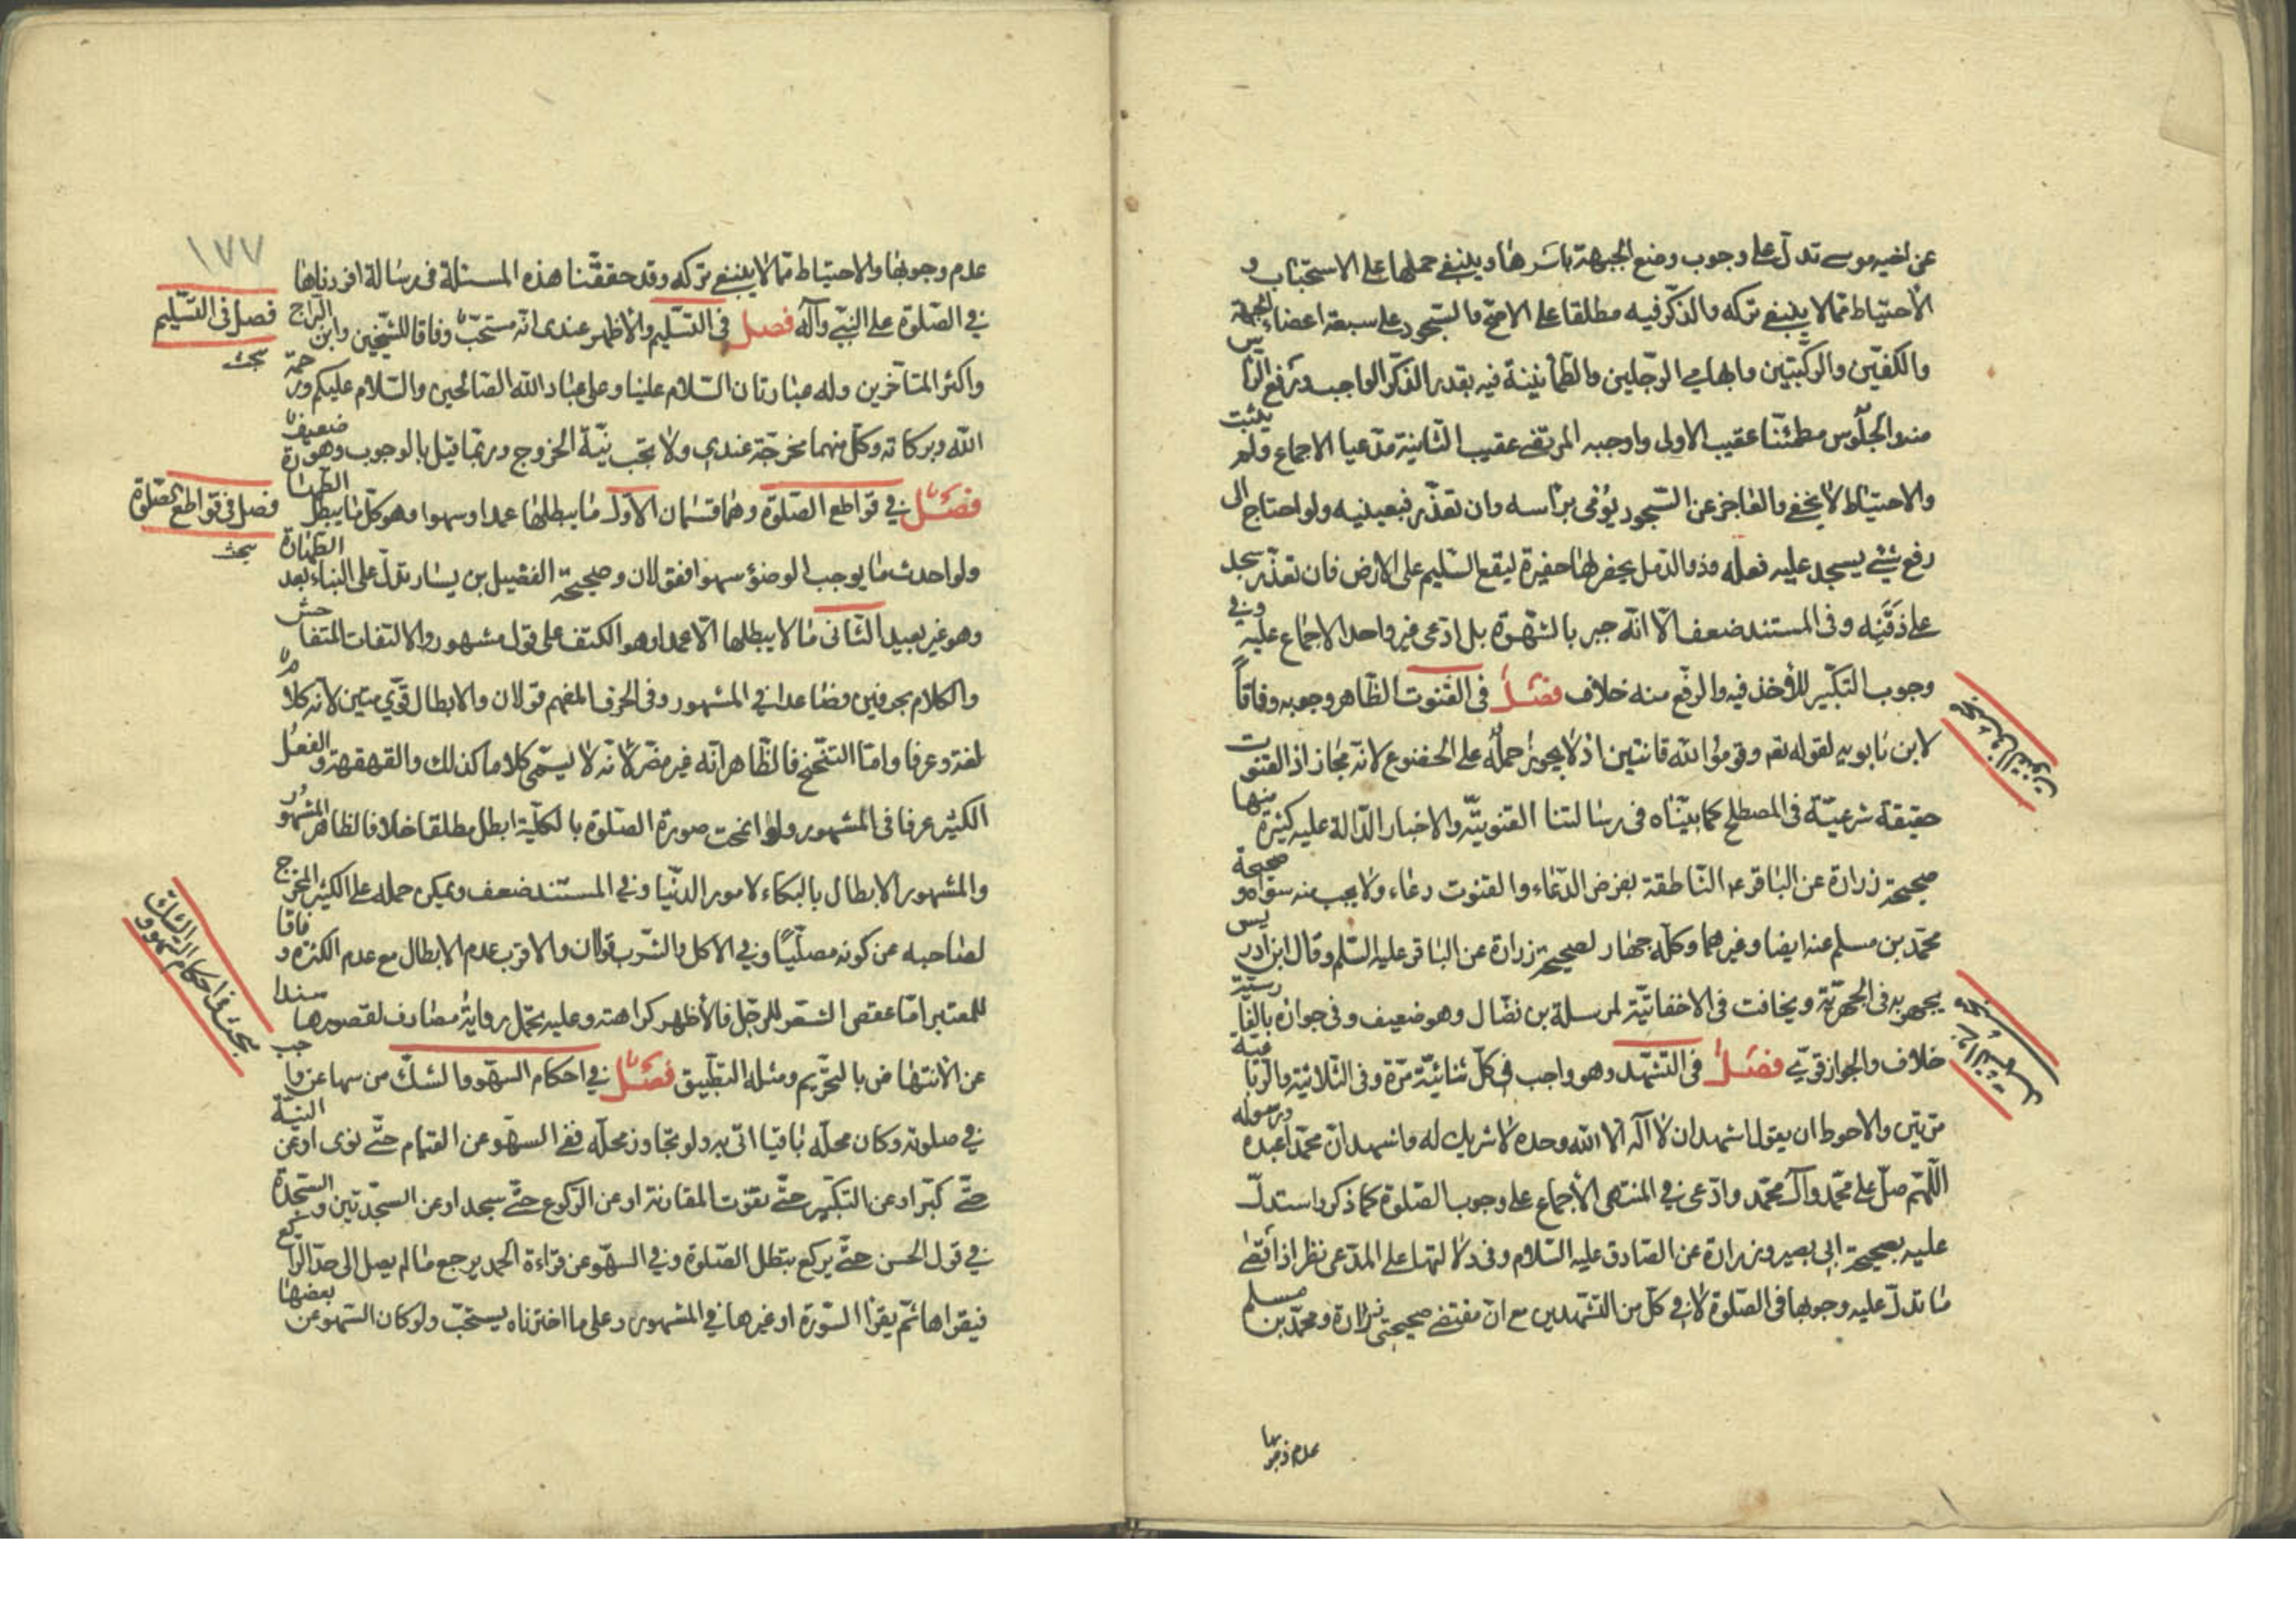 عن اخيه موسى تدل على وجوب وضع الجبهة باسرها وينبغي حملها على الاستحباب و
الاحتياط ممّا لا ينبغي تركه والذكر فيه مطلقا على الاصح والسجود على سبعة اعضاء الجبهة
والكفّين والركبتين وابهامي الرجلين والطمأنينة فيه بقدر الذكر الواجب ورفع الرأس
منه والجلوس مطمئنا عقيب الاول واوجبه المرتضى عقيب الثانية مدّعيا الاجماع ولم يثبت
والاحتياط لا يخفى والعاجز عن السجود يؤمى برأسه وان تعذّر فبعينيه ولو احتاج الى
رفع شيء يسجد عليه فعله وذو الدمل يحفر لها حفيرة ليقع السليم على الارض فان تعذّر سجد
على ذقنه وفى المستند ضعف الّا انّه جبر بالشهرة بل ادّعى غير واحد الاجماع عليه وفي
وجوب التكبير للأخذ فيه والرفع منه خلاف فصل فى القنوت الظاهر وجوبه وفاقاً
لابن بابويه لقوله تعم وقوموا لله قانتين اذ لا يجوز حمله على الخضوع لانّه مجاز اذ القنوت
حقيقة شرعيّة فى المصطلح كما بيّنّاه فى رسالتنا القنوتيّه والاخبار الدّالة عليه كثيرة منها
صحيحة زرارة عن الباقر ع الناطقة بفرض الدّعاء والقنوت دعاء ولا يجب منه سواه و صحيحة
محمّد بن مسلم عنه ايضا وغيرهما وكلّه جهار لصحيحة زرارة عن الباقر عليه السّلم وقال ابن ادريس
يجهر به فى الجهرتيّة ويخافت فى الاخفاتيّة لمرسلة بن نضال وهو ضعيف وفى جوازه بالفارسيّة
خلاف والجواز قوي فصل فى التشهّد وهو واجب فى كلّ ثنائيّة مرّة وفى الثلاثية والرباعيّة
مرّتين والاحوط ان يقول اشهد ان لا اله الا الله وحده لا شريك له واشهد انّ محمّدا عبده ورسوله
اللّهم صلّ على محمّد وآل محمّد وادّعى في المنتهى الاجماع على وجوب الصّلوة كما ذكر واستدلّ
عليه بصحيحة ابى بصير وزرارة عن الصّادق عليه السّلام وفى دلالتهما على المدّعى نظر اذ اقصى
ما تدلّ عليه وجوبها فى الصّلوة لا في كلّ من التشهّدين مع انّ مقتضى صحيحتى زرارة ومحمّد بن مسلم
عدم وجوبها
١٧٧
عدم وجوبها والاحتياط ممّا لا ينبغى تركه وقد حققّنا هذه المسئلة فى رسالة افردناها
في الصّلوة على النبيّ وآله فصل فى التسليم والاظهر عندى انّه مستحبّ وفاقا للشيخين وابن البراج
واكثر المتأخرين وله عبارتان السّلام علينا وعلى عباد الله الصّالحين والسّلام عليكم ورحمة
الله وبركاته وكلّ منهما مخرجة عندي ولا تجب نيّة الخروج وربّما قيل بالوجوب وهو ضعيف
فصل في قواطع الصّلوة وهما قسمان الاوّل ما يبطلها عمدا وسهوا وهو كلّ ما يبطل الطهارة
ولو احدث ما يوجب الوضؤ سهوا فقولان وصحيحة الفضيل بن يسار تدلّ على البناء بعد الطّهارة
وهو غير بعيد الثّانى ما لا يبطلها الّا عمدا وهو الكتف على قول مشهور والالتفات المتفاحش
والكلام بحرفين فصاعدا في المشهور وفى الحرف المفهم قولان والابطال قويّ متين لانّه كلام
لغة وعرفا وامّا التنحنح فالظّاهر انّه غير مضرّ لانّه لا يسمّى كلاما كذلك والقهقهة والفعل
الكثير عرفا فى المشهور ولو انمحت صورة الصّلوة بالكليّة ابطل مطلقا خلافا لظاهر المشهور
والمشهور الابطال بالبكاء لامور الدّنيا وفي المستند ضعف ويمكن حمله على الكثير المخرج
لصاحبه عن كونه مصلّيا وفي الاكل والشّرب قولان والاقرب عدم الابطال مع عدم الكثرة وفاقا
للمعتبر امّا عقص الشعر للرّجل فالأظهر كراهته وعليه يحمل رواية مصادف لقصورها سندا
عن الانتهاض بالتحريم ومثله التطبيق فصل في احكام السهو والشكّ من سها عن واجب
في صلوته وكان محلّه باقيا اتى به ولو تجاوز محلّه ففى السهو عن القيام حتّى نوى او عن النيّة
حتّى كبّر او عن التكبير حتّى تفوت المقارنة او عن الركوع حتّى سجد او عن السجدتين والسجدة
في قول الحسن حتّى يركع تبطل الصّلوة وفي السهو عن قراءة الحمد يرجع ما لم يصل الى حدّ الراكع
فيقراها ثم يقرأ السّورة او غيرها في المشهور وعلى ما اخترناه يستحبّ ولو كان السّهو عن بعضها
فصل فى التسليم
بحث
فصل فى قواطع الصّلوة
بحث
بحث فى احكام السهو والشك